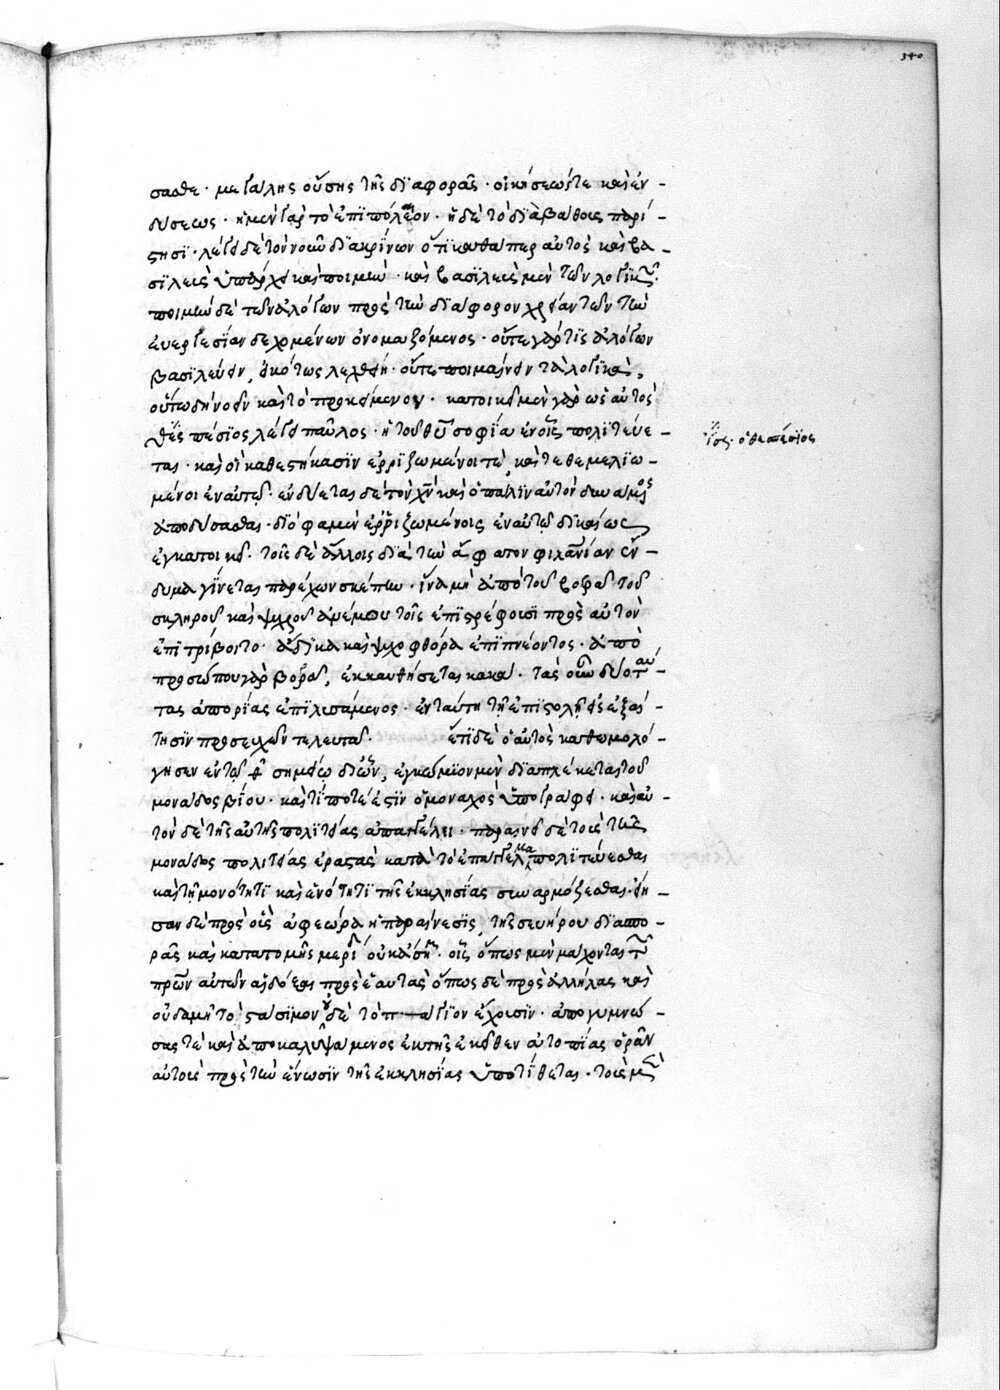 340
σασθε · μεγάλης οὔσης τῆς διαφορᾶς · οἰκήσεώς τε καὶ ἐν-
δύσεως · ἡ μὲν γὰρ τὸ ἐπιπόλαιον · ἡ δὲ τὸ διὰ βάθους παρί-
στησι · λέγει δὲ τὸν νοῦν διακρίνων ὅτι καθάπερ αὐτὸς καὶ βα-
σιλεὺς ὑπάρχει καὶ ποιμὴν · καὶ βασιλεὺς μὲν τῶν λογικῶν ·
ποιμὴν δὲ τῶν ἀλόγων πρὸς τὴν διάφορον χρείαν τῶν τὴν
εὐεργεσίαν δεχομένων ὀνομαζόμενος · οὔτε γὰρ τις ἀλόγων
βασιλεύειν, εἰκότως λεχθείη · οὔτε ποιμαίνειν τὰ λογικά,
οὕτω δὴ νοεῖν καὶ τὸ προκείμενον · κατοικεῖ μὲν γὰρ ὡς αὐτὸς
θεσπέσιος λέγει παῦλος · ἡ τοῦ θυ σοφία ἐν οἷς πολιτεύε-
ται · καὶ οἱ καθεστήκασιν ἐρριζωμένοι τὲ, καὶ τεθεμελιω-
μένοι ἐν αὐτῷ · ἐνδύεται δὲ τὸν χν καὶ ὁ πάλιν αὐτὸν δυνάμενος
ἀποδύσασθαι · διό φαμεν ἐρριζωμένοις ἐν αὐτῷ δικαίως
ἐγκατοικεῖ · τοῖς δὲ ἄλλοις διὰ τὴν ἄφατον φιλανίαν ἔν-
δυμα γίνεται παρέχων σκέπην · ἵνα μὴ ἀπὸ τοῦ βορρᾶ τοῦ
σκληροῦ καὶ ψυχροῦ ἀνέμου τοῖς ἐπιστρέφουσι πρὸς αὐτὸν
ἐπιτρίβοιτο · ἄδικα καὶ ψυχοφθόρα ἐπιπνέοντος · ἀπὸ
προσώπου γὰρ βορρᾶ, ἐκκαυθήσεται κακά · τὰς οὖν δύο ταύ-
τας ἀπορίας ἐπιλυσάμενος · ἐν ταύτῃ τῇ ἐπιστολῇ εἰς ἐξαί-
τησιν προσευχῶν τελευτᾷ · ἔτι δὲ ὁ αὐτὸς καθωμολό-
γησεν ἐν τῷ σημείῳ διὸν, ἐγκώμιον μὲν διαπλέκεται τοῦ
μονάδος βίου · καὶ τί ποτέ ἐστιν ὁ μοναχὸς ὑπογράφει · καὶ αὐ-
τὸν δὲ τῆς αὐτῆς πολιτείας ἀπαγγέλει · παραινεῖ δὲ τοὺς τῆς
μονάδος πολιτείας ἐραστὰς κατὰ τὸ ἐπάγγελμα πολιτεύεσθαι
καὶ τῇ μονότητι καὶ ἑνότητι τῆς ἐκκλησίας συναρμόζεσθαι · ἦ-
σαν δὲ πρὸς οἷς ἀφεώρα ἡ παραίνεσις, τῆς σευήρου διασπο-
ρᾶς καὶ κατατομῆς μερὶς οὐκ ἄση · οἷς ὅπως μὲν μάχονται τῶν
πρων αὐτῶν αἰδοῖ καὶ πρὸς ἑαυτὰς ὅπως δὲ πρὸς ἀλλήλας καὶ
οὐδαμῆ τὸ στάσιμον οὐδὲ τὸ πάγιον ἔχουσιν · ἀπογυμνώ-
σας τὲ καὶ ἀποκαλυψάμενος ἐκ τῆς ἐκεῖθεν αὐτοπίας ὁρᾶν
αὐτοὺς πρὸς τὴν ἕνωσιν τῆς ἐκκλησίας ὑποτίθεται · τοὺς μὲν
ἴσως · ὁ θεσπέσιος